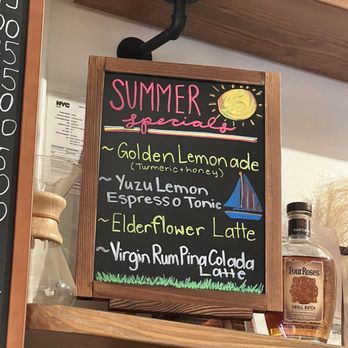 NYC
SUMMER
specials
~ Golden Lemonade
(Turmeric + honey)
~ Yuzu Lemon
Espresso Tonic
~ Elderflower Latte
~ Virgin Rum Pina Colada
Latte
Four Roses
SMALL BATCH
5
0
5
0
0
0